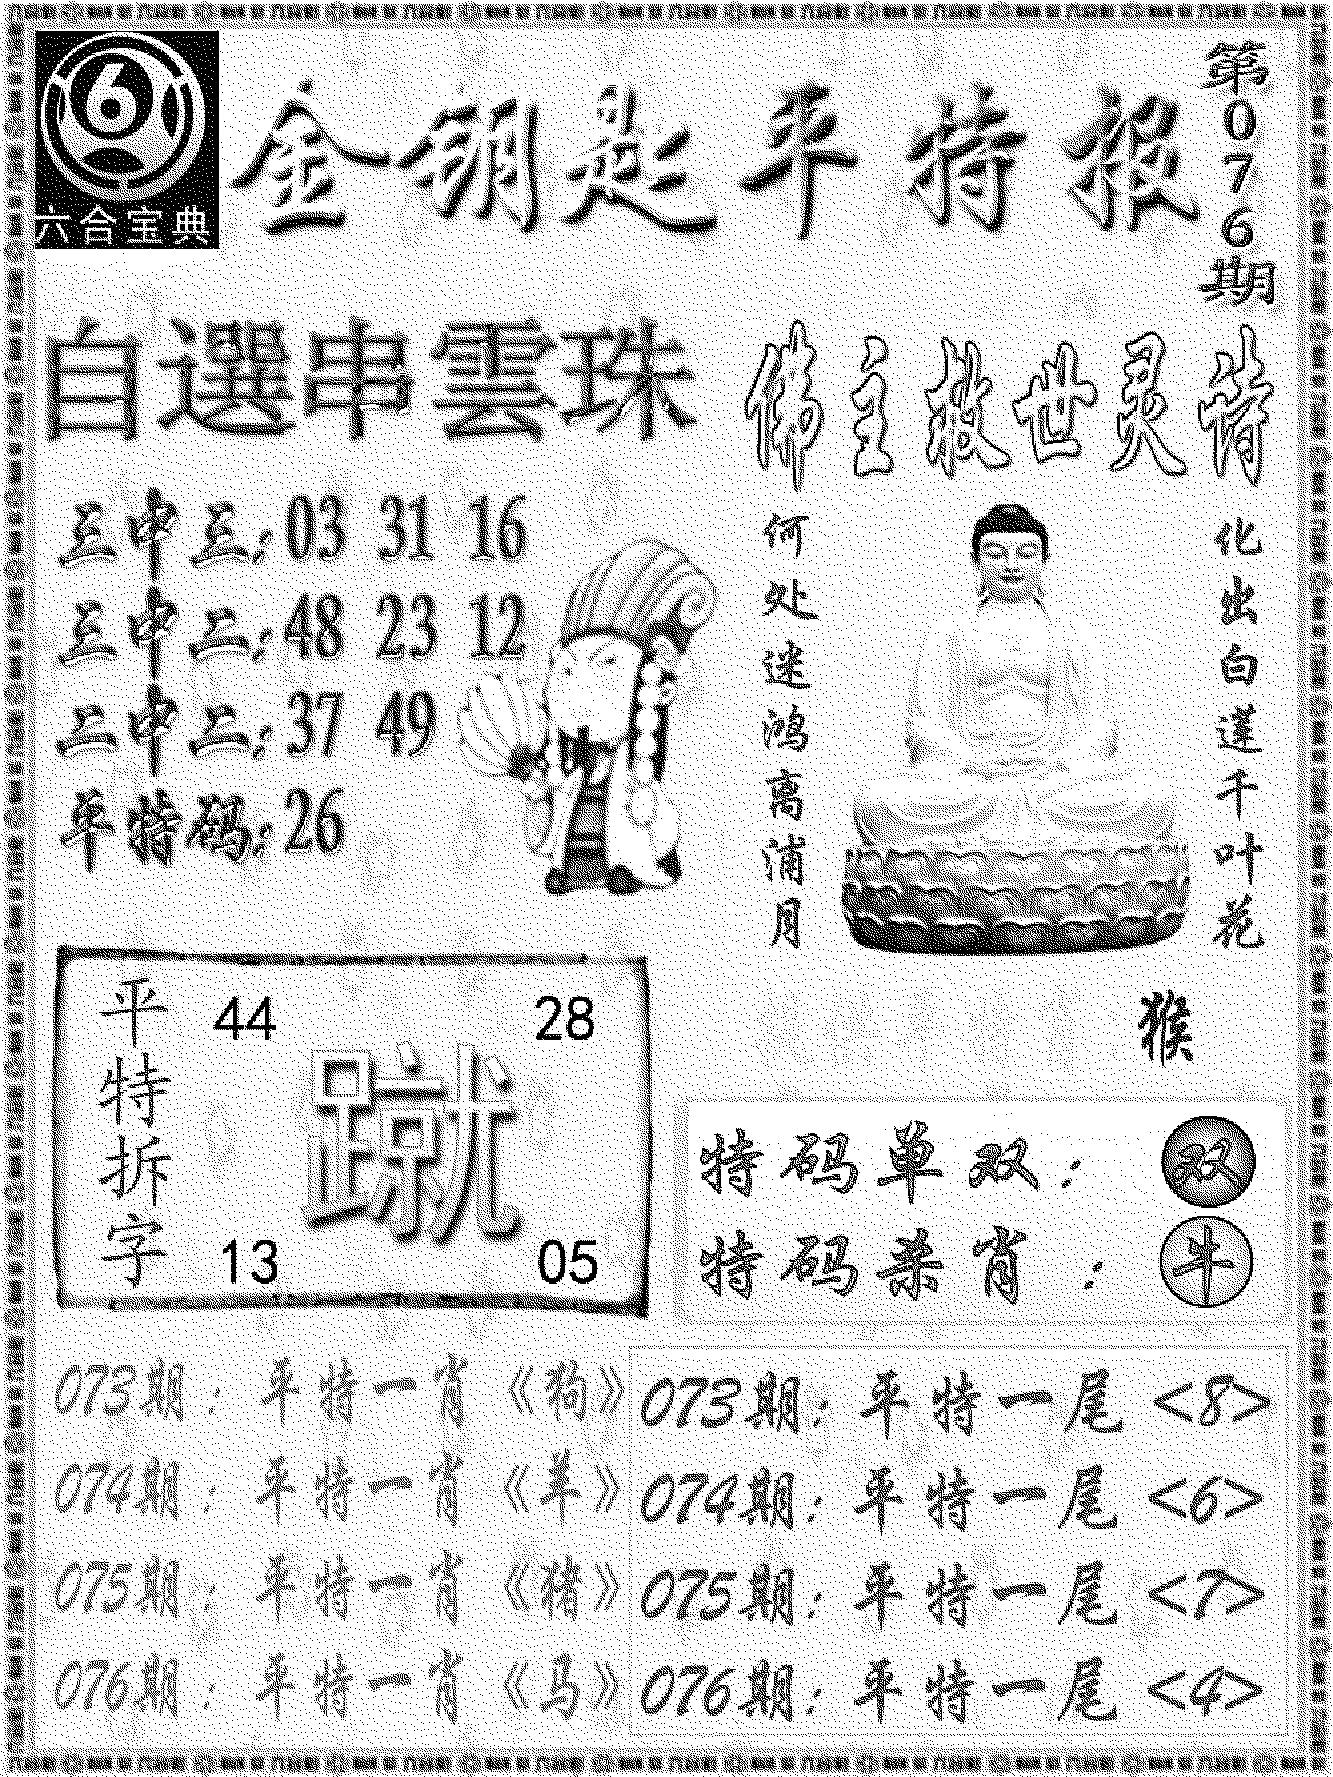 六合宝典
金钥匙平特报
第076期
自選串雲珠
三中三:03 31 16
三中二:48 23 12
二中二:37 49
平特码:26
佛主救世灵诗
何处迷鸿离浦月
化出白莲千叶花
猴
平特拆字
44 28
蹴
13 05
特码单双:双
特码杀肖:牛
073期:平特一肖《狗》
074期:平特一肖《羊》
075期:平特一肖《猪》
076期:平特一肖《马》
073期:平特一尾<8>
074期:平特一尾<6>
075期:平特一尾<7>
076期:平特一尾<4>